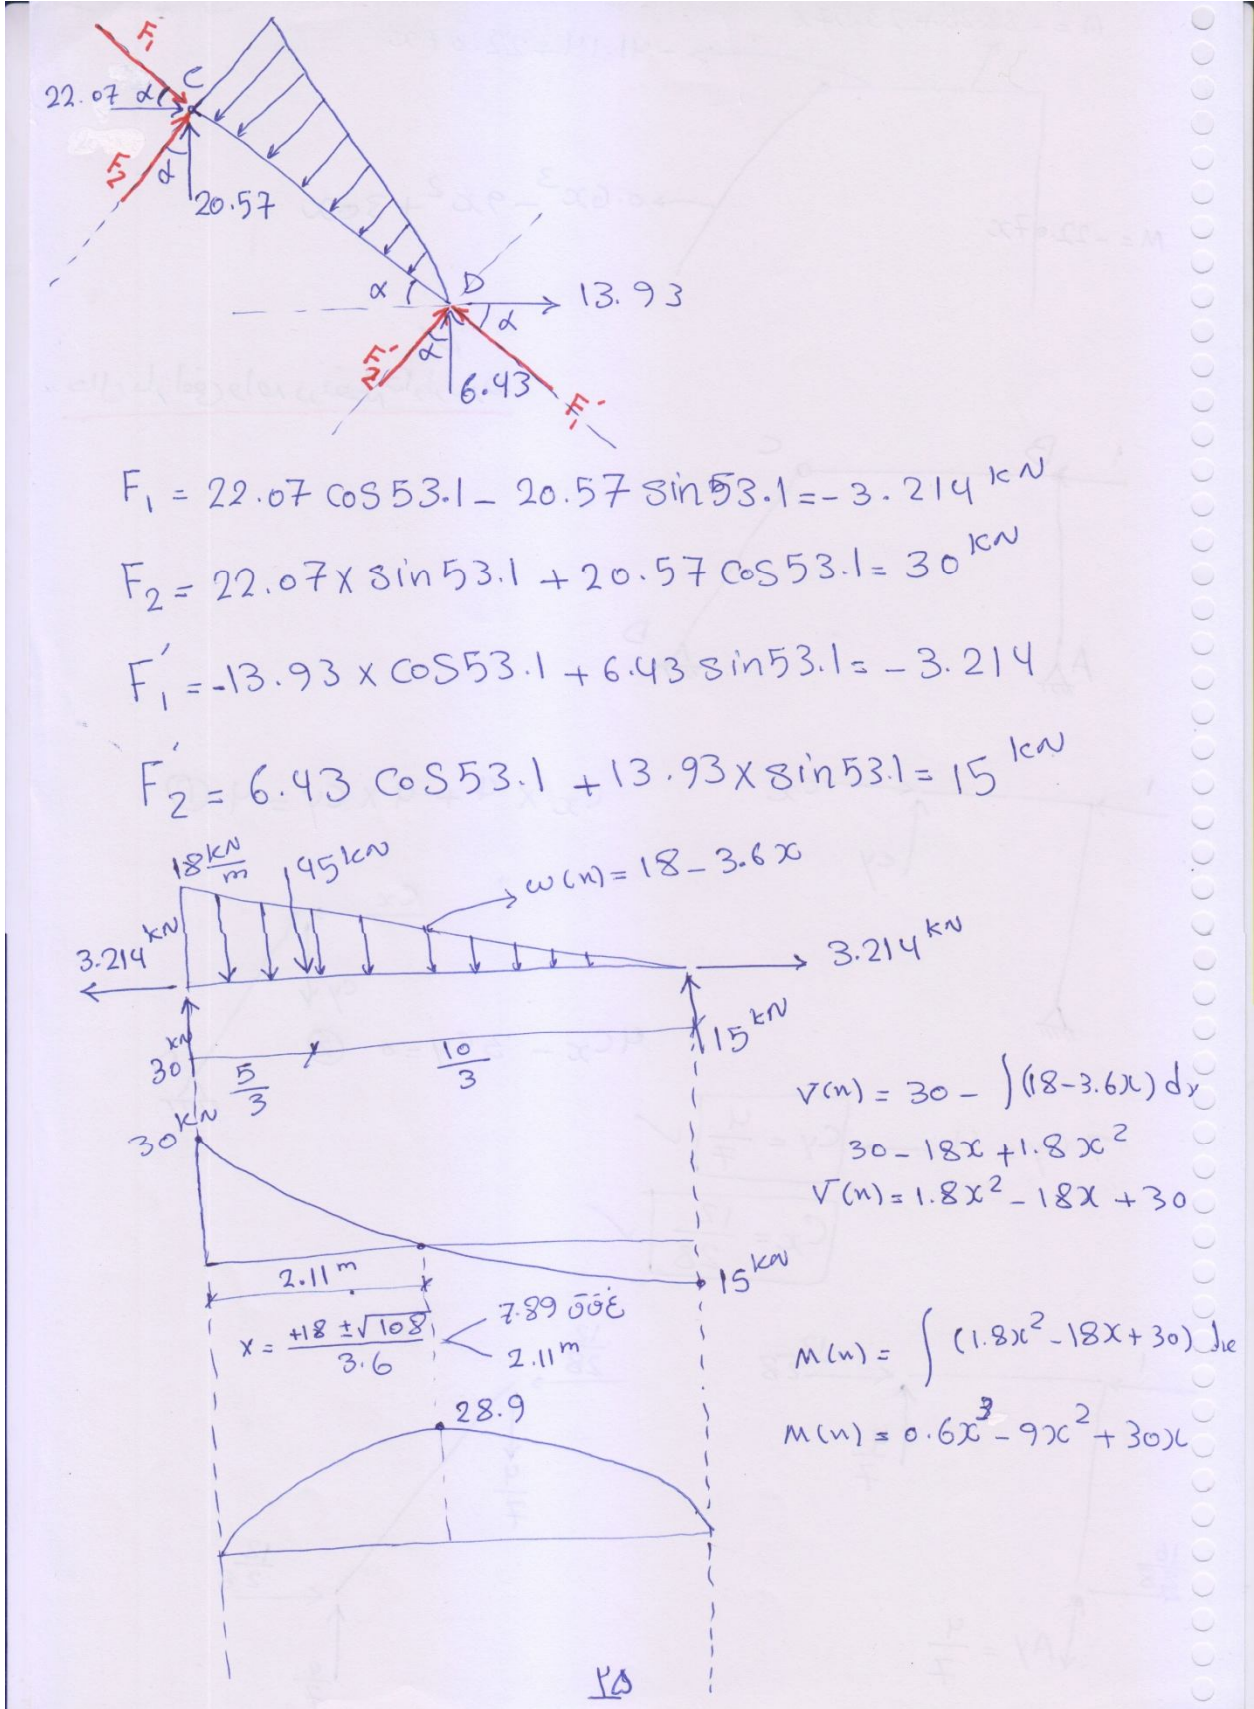 F₁
C
22.07 α
F₂
α
20.57
α
D
13.93
α
α
F₂'
6.43
F₁'
F₁ = 22.07 cos 53.1 - 20.57 sin 53.1 = - 3.214 kN
F₂ = 22.07 x sin 53.1 + 20.57 cos 53.1 = 30 kN
F₁' = -13.93 x cos 53.1 + 6.43 sin 53.1 = - 3.214
F₂' = 6.43 cos 53.1 + 13.93 x sin 53.1 = 15 kN
18 kN/m
45 kN
ω(n) = 18 - 3.6x
3.214 kN
3.214 kN
30 kN
5/3
10/3
15 kN
V(n) = 30 - ∫(18-3.6x) dx
30 - 18x + 1.8x²
V(n) = 1.8x² - 18x + 30
30 kN
2.11 m
15 kN
x = (+18 ± √108)/3.6
7.89 غ ق ق
2.11 m
M(n) = ∫ (1.8x² - 18x + 30) dx
M(n) = 0.6x³ - 9x² + 30x
28.9
۲۵